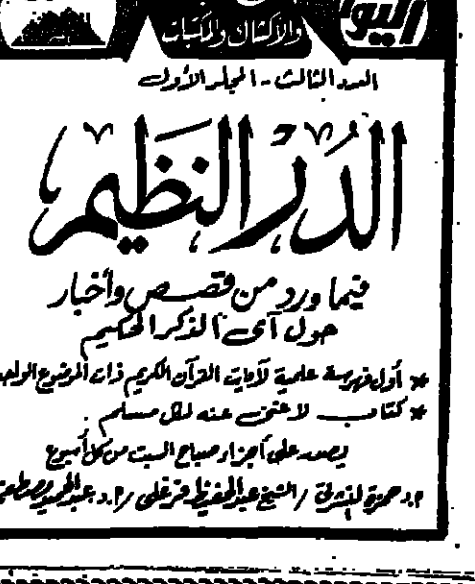 اليوم
والأكشاك والمكتبات
العدد الثالث - المجلد الأول
الدر النظيم
فيما ورد من قصص وأخبار
حول آى الذكر الحكيم
* أول فهرسة علمية لآيات القرآن الكريم ذات الموضوع الواحد
* كتاب لا غنى عنه لكل مسلم .
يصدر على أجزاء صباح السبت من كل أسبوع
د. حمزة النشرتى / الشيخ عبدالحفيظ فرغلى / د. عبدالحميد مصطفى